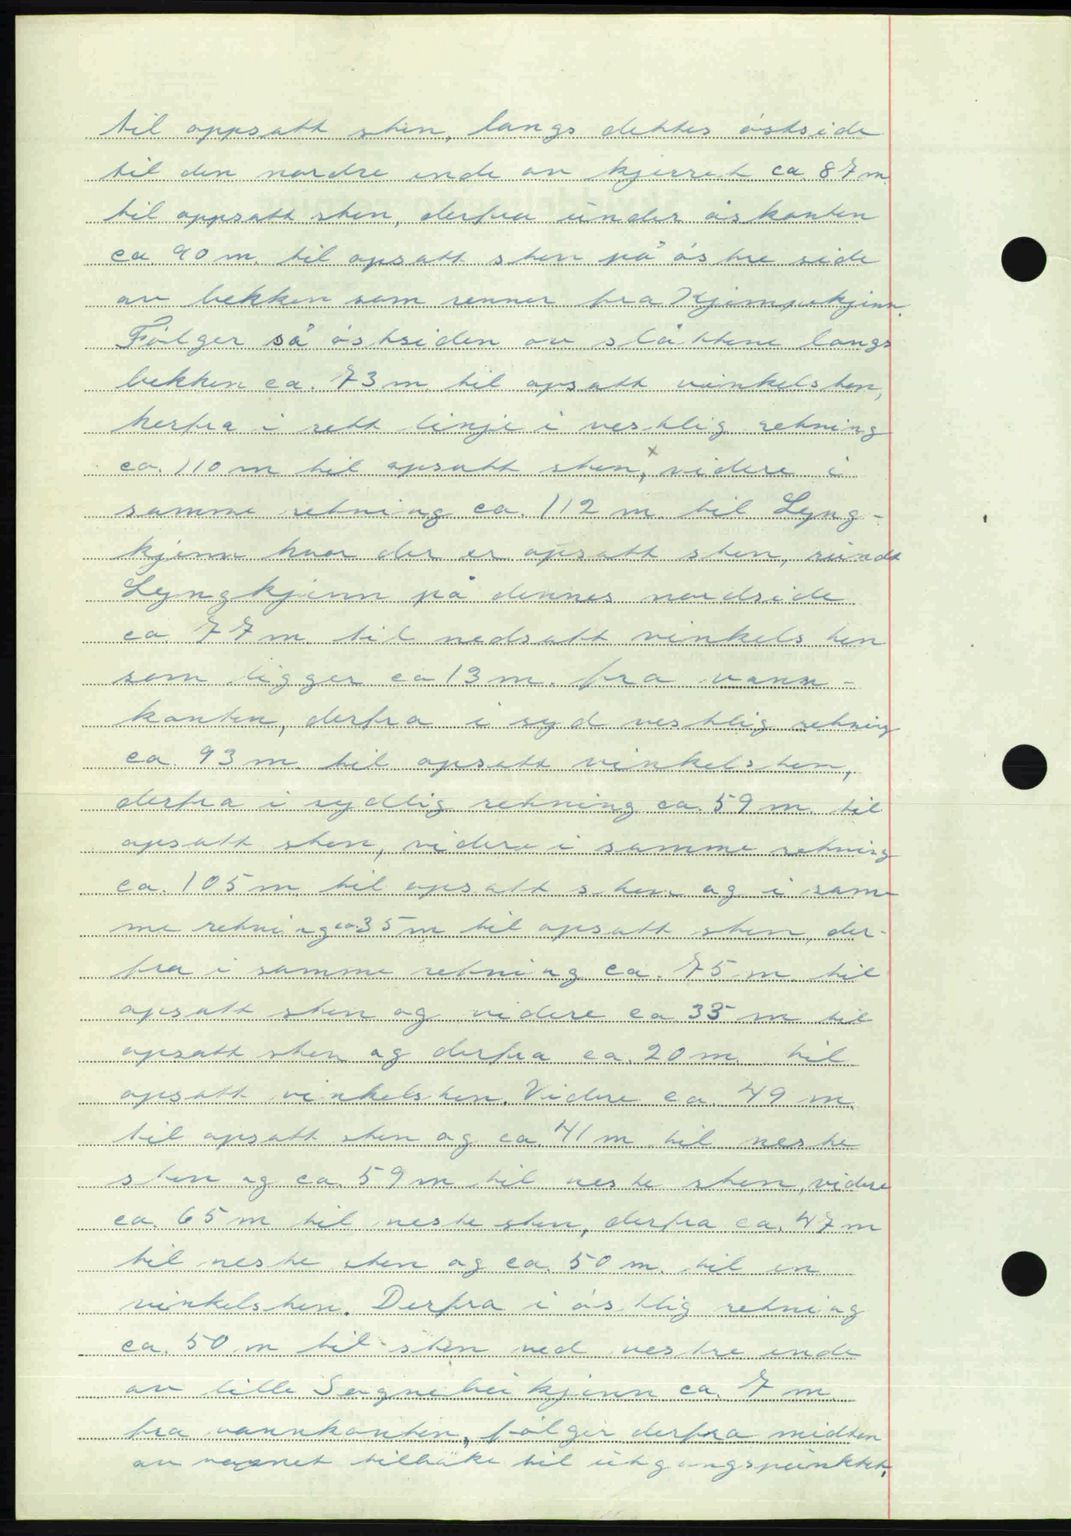 til oppsatt sten, langs dettes østside
til den nordre ende av kjerret ca 87 m
til oppsatt sten, derfra under åskanten
ca 90 m. til opsatt sten på østre side
av bekken som renner fra
Følger så østsiden av slåttene langs
bekken ca. 73 m til opsatt vinkelsten,
herfra i rett linje i vestlig retning
ca. 110 m til opsatt sten, x videre i
samme retning ca. 112 m til Lyng-
kjinn hvor der er opsatt sten, rundt
Lyngkjinn på dennes nordside
ca 77 m. til nedsatt vinkelsten
som ligger ca 13 m. fra vann-
kanten, derfra i sydvestlig retning
ca. 93 m. til opsatt vinkelsten,
derfra i sydlig retning ca. 59 m. til
opsatt sten, videre i samme retning
ca. 105 m til opsatt sten og i sam-
me retning ca 35 m til opsatt sten, der-
fra i samme retning ca. 75 m. til
opsatt sten og videre ca 35 m til
opsatt sten og derfra ca. 20 m til
opsatt vinkelsten. Videre ca. 49 m.
til opsatt sten og ca 41 m til neste
sten og ca. 59 m til neste sten, videre
ca. 65 m til neste sten, derfra ca. 47 m
til neste sten og ca. 50 m. til en
vinkelsten. Derfra i østlig retning
ca. 50 m til sten ved vestre ende
av lille kjinn ca. 7 m
fra vannkanten, følger derfra midten
av vannet tilbake til utgangspunktet.